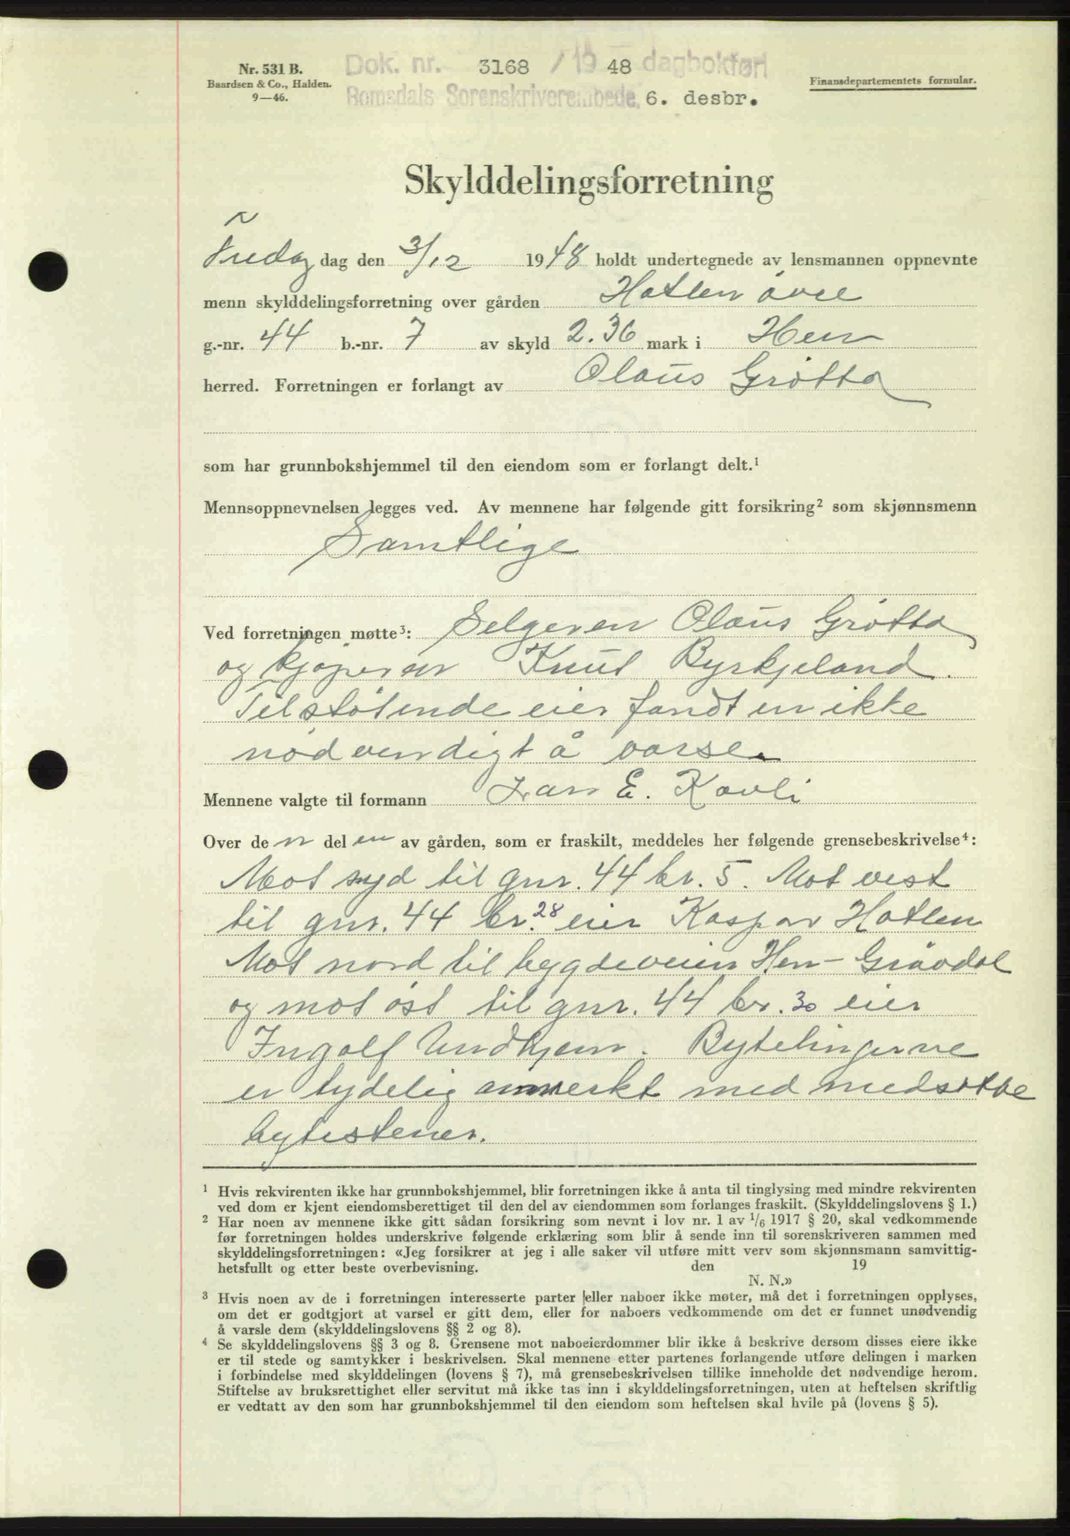 Nr. 531 B.
Baardsen & Co., Halden.
9—46.
Dok. nr. 3168 / 1948 dagbokført
Romsdals Sorenskriverembede, 6. desbr.
Finansdepartementets formular.
Skylddelingsforretning
Fredag dag den 3/12 1948 holdt undertegnede av lensmannen oppnevnte
menn skylddelingsforretning over gården Hatlen øvre
g.-nr. 44 b.-nr. 7 av skyld 2.36 mark i Hen
herred. Forretningen er forlangt av Olaus Grötta
som har grunnbokshjemmel til den eiendom som er forlangt delt.¹
Mennsoppnevnelsen legges ved. Av mennene har følgende gitt forsikring² som skjønnsmenn
Samtlige
Ved forretningen møtte³: Selgeren Olaus Grötta
og kjøperen Knut Byrkjeland.
Tilstøtende eier fandt en ikke
nødvendigt å varsle
Mennene valgte til formann Lars E. Kavli
Over de n del en av gården, som er fraskilt, meddeles her følgende grensebeskrivelse⁴:
Mot syd til gnr. 44 br. 5. Mot vest
til gnr. 44 br. 28 eier Kaspar Hatlen
Mot nord til bygdeveien Hen - Grøvdal
og mot øst til gnr. 44 br. 30 eier
Ingolf Undhjem. Bytelinjerne
er tydelig anmerkt med nedsatte
bytestener.
¹ Hvis rekvirenten ikke har grunnbokshjemmel, blir forretningen ikke å anta til tinglysing med mindre rekvirenten
ved dom er kjent eiendomsberettiget til den del av eiendommen som forlanges fraskilt. (Skylddelingslovens § 1.)
² Har noen av mennene ikke gitt sådan forsikring som nevnt i lov nr. 1 av 1/6 1917 § 20, skal vedkommende
før forretningen holdes underskrive følgende erklæring som blir å sende inn til sorenskriveren sammen med
skylddelingsforretningen: «Jeg forsikrer at jeg i alle saker vil utføre mitt verv som skjønnsmann samvittig-
hetsfullt og etter beste overbevisning. den 19
N. N.»
³ Hvis noen av de i forretningen interesserte parter eller naboer ikke møter, må det i forretningen opplyses,
om det er godtgjort at varsel er gitt dem, eller for naboers vedkommende om det er funnet unødvendig
å varsle dem (skylddelingslovens §§ 2 og 8).
⁴ Se skylddelingslovens §§ 3 og 8. Grensene mot naboeierdommer blir ikke å beskrive dersom disses eiere ikke
er til stede og samtykker i beskrivelsen. Skal mennene etter partenes forlangende utføre delingen i marken
i forbindelse med skylddelingen (lovens § 7), må grensebeskrivelsen tillike inneholde det nødvendige herom.
Stiftelse av bruksrettighet eller servitut må ikke tas inn i skylddelingsforretningen, uten at heftelsen skriftlig
er vedtatt av den som har grunnbokshjemmel til den eiendom som heftelsen skal hvile på (lovens § 5).